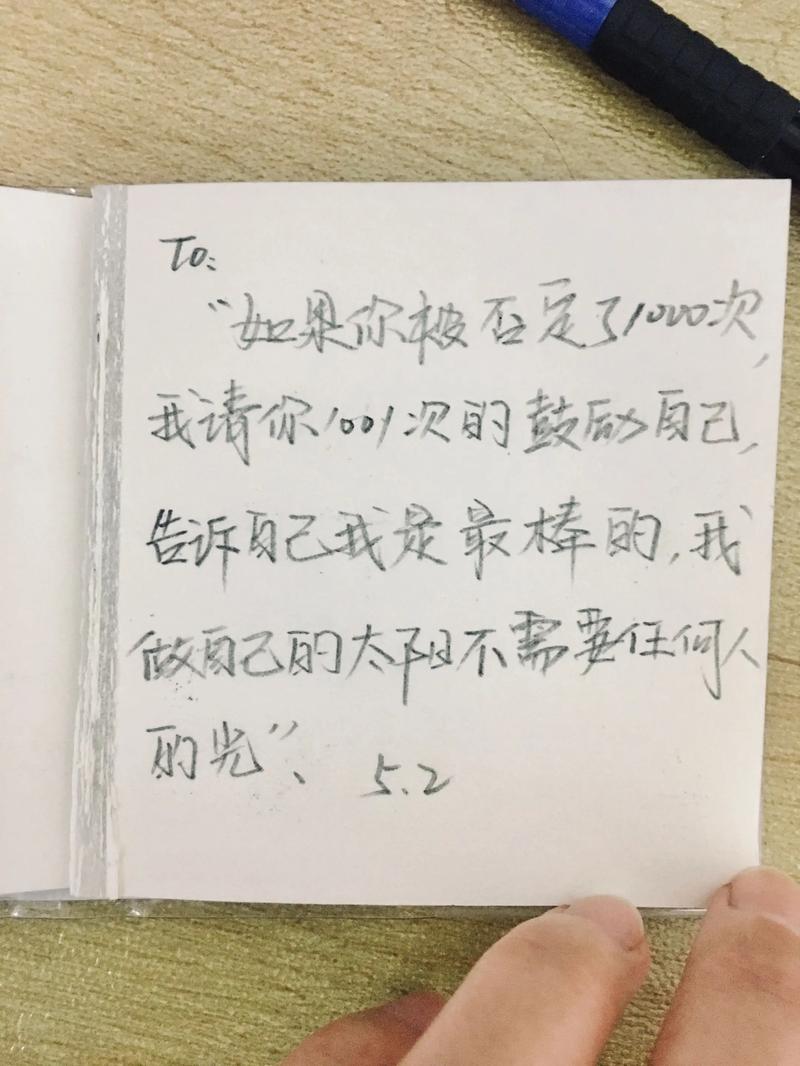 To:
“如果你被否定了1000次,
我请你1001次的鼓励自己,
告诉自己我是最棒的,我
做自己的太阳不需要任何人
的光”、 5.2